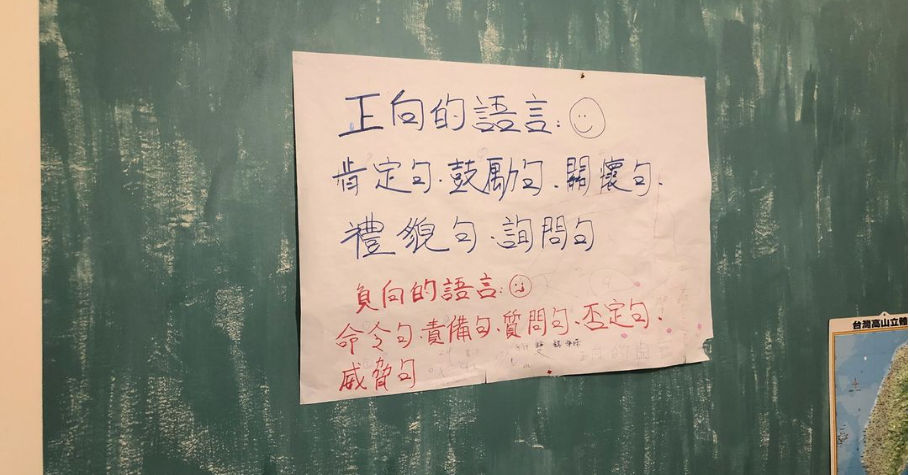 正向的語言:
肯定句、鼓勵句、關懷句、
禮貌句、詢問句
負向的語言:
命令句、責備句、質問句、否定句、
威脅句
台灣高山立體